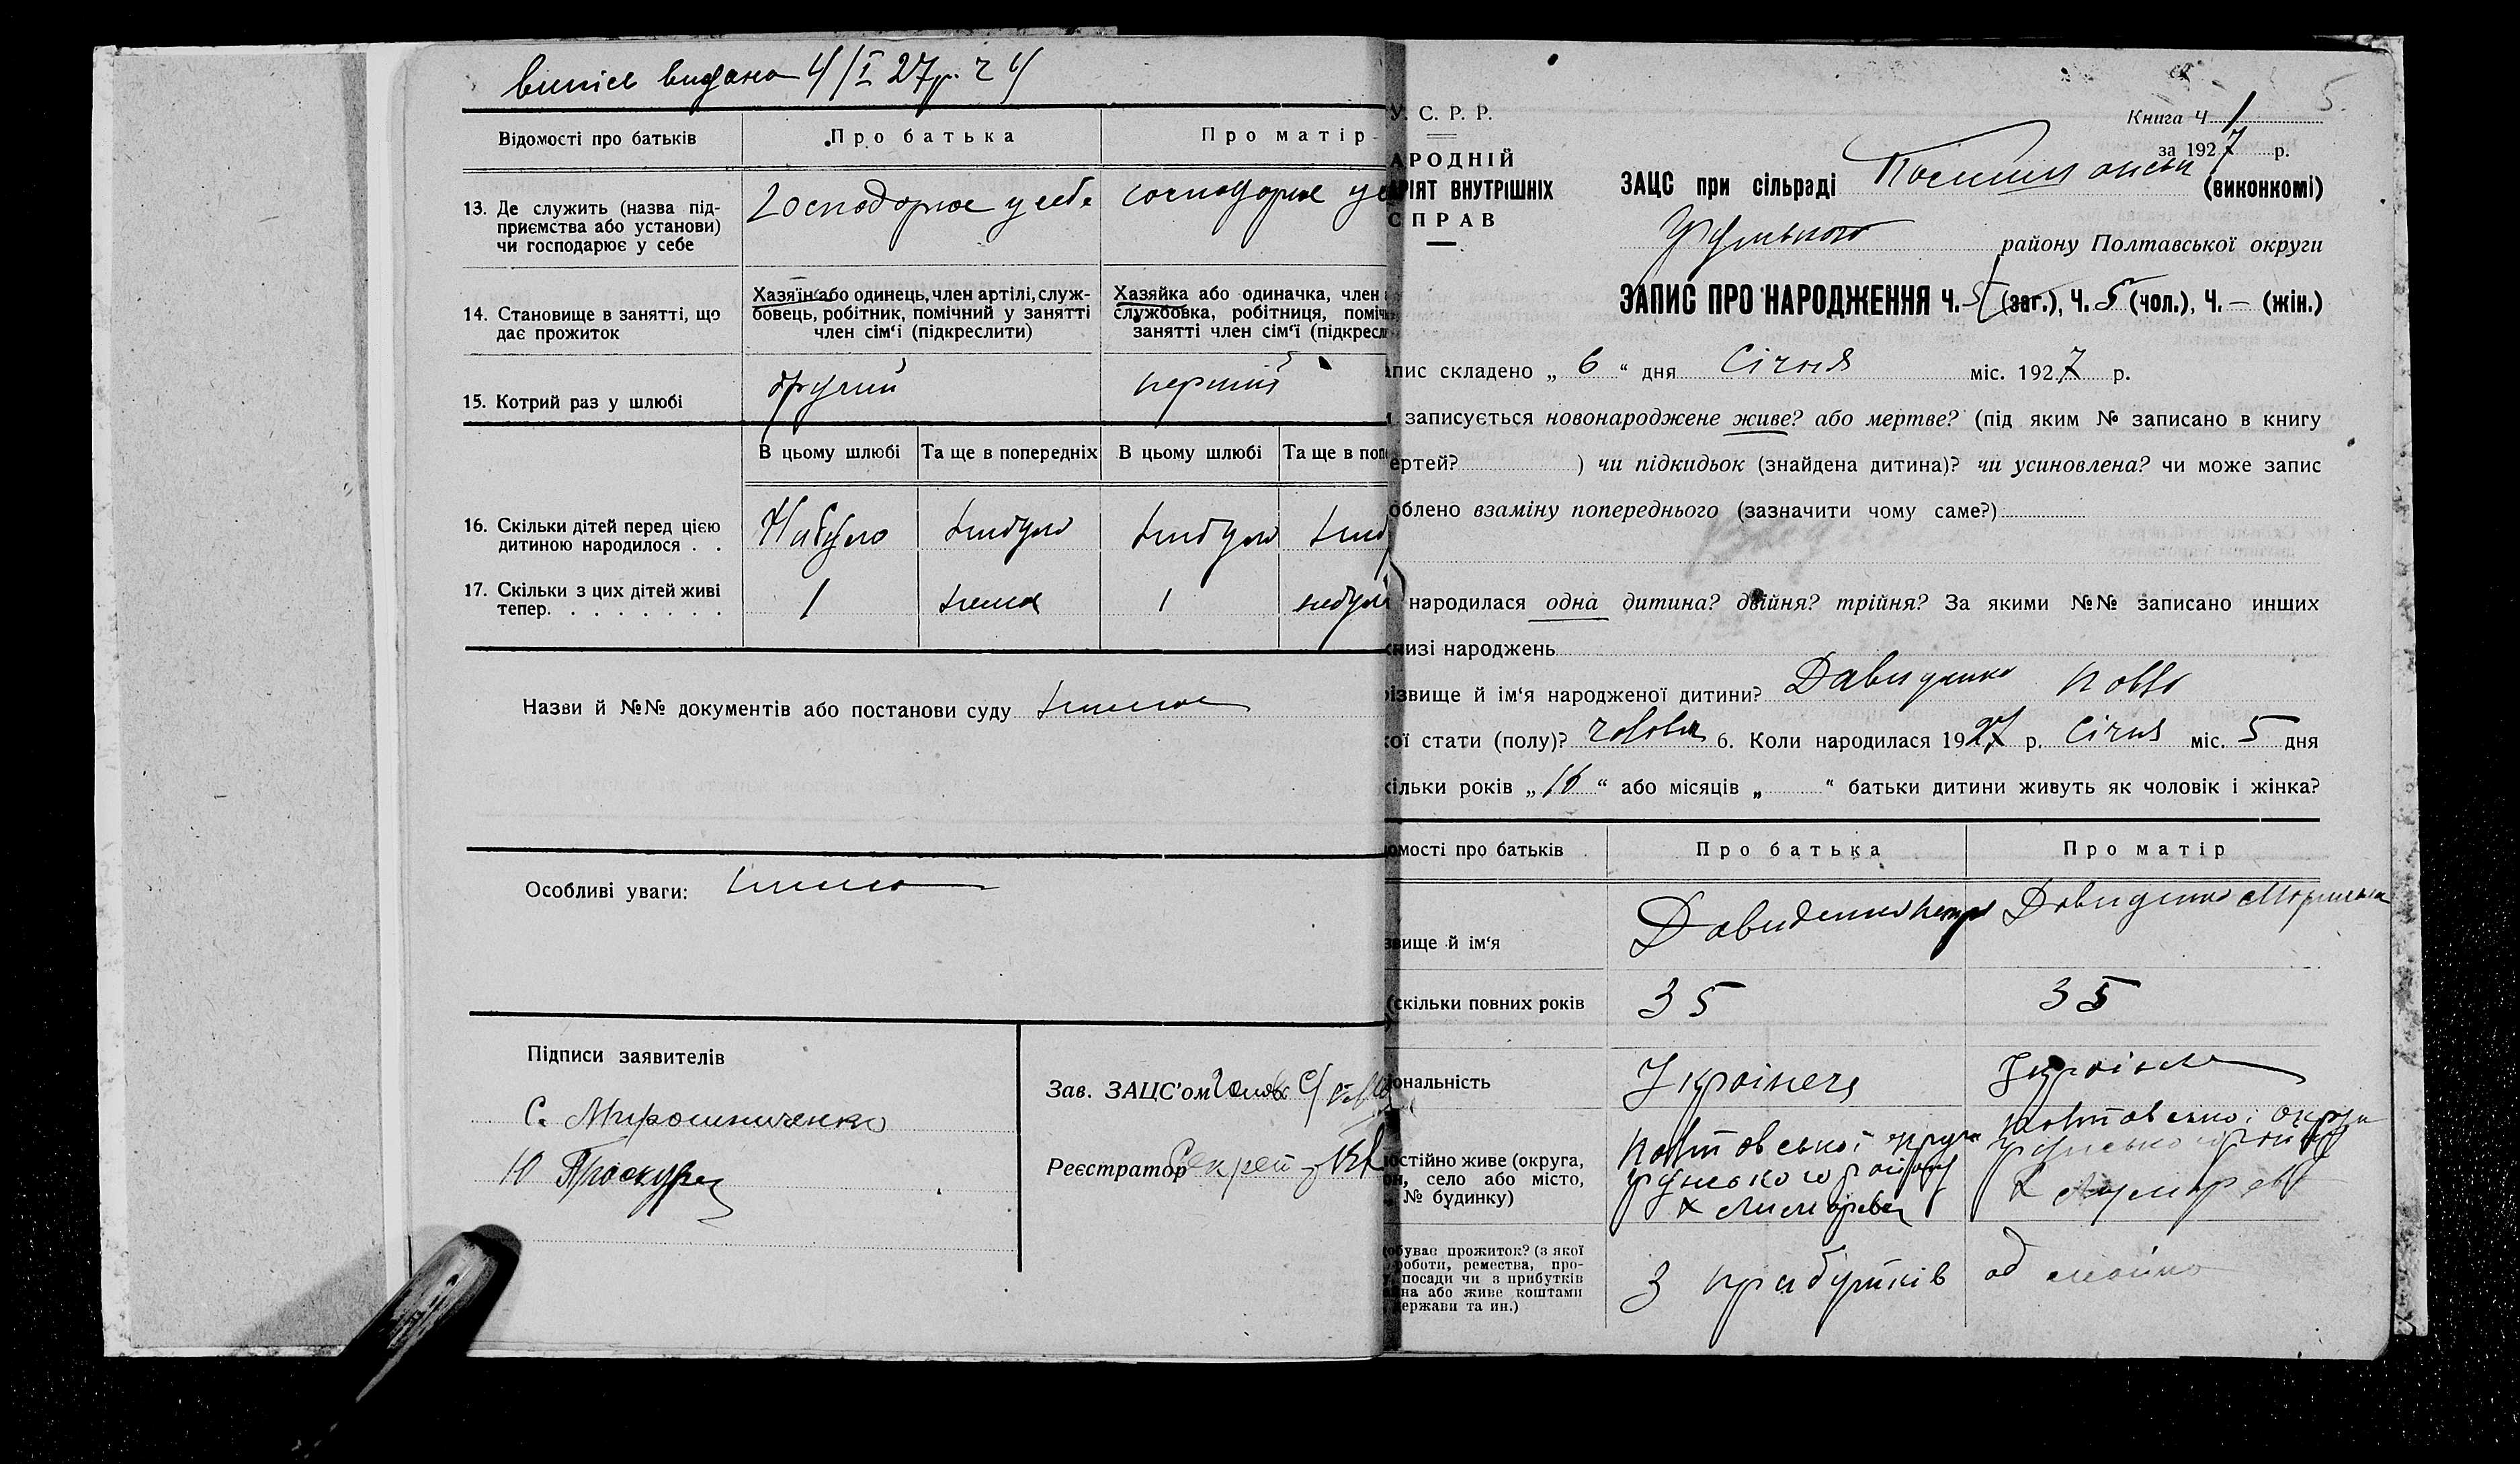 випісь видано 4/I 27р. ч 4
Відомості про батьків
Про батька
Про матір
13. Де служить (назва під-
приємства або установи)
чи господарює у себе
Господорює у себе
господорює у се
14. Становище в занятті, що
дає прожиток
Хазяїн або одинець, член артілі, служ-
бовець, робітник, помічний у занятті
член сім‘ї (підкреслити)
Хазяйка або одиначка, член
службовка, робітниця, поміч
занятті член сім‘ї (підкресл
15. Котрий раз у шлюбі
другий
перший
В цьому шлюбі
Та ще в попередніх
В цьому шлюбі
Та ще в поп
16. Скільки дітей перед цією
дитиною народилося . .
Небуло
небуло
небуло
неб
17. Скільки з цих дітей живі
тепер. . . . . . . .
1
нема
1
небул
Назви й №№ документів або постанови суду нема
Особливі уваги: нема
Підписи заявителів
С. Мирошниченко
Ю Проскура
Зав. ЗАЦС’ом Голова С/
Реєстратор Секрет
5.
У. С. Р. Р.
АРОДНІЙ
АРІЯТ ВНУТРІШНІХ
СПРАВ
Книга Ч 1
за 1927 р.
ЗАЦС при сільраді (виконкомі)
району Полтавської округи
ЗАПИС ПРО НАРОДЖЕННЯ Ч. 5 (заг.), Ч. 5 (чол.), Ч. — (жін.)
апис складено „ 6 “ дня Січня міс. 1927 р.
записується новонароджене живе? або мертве? (під яким № записано в книгу
ертей? ) чи підкидьок (знайдена дитина)? чи усиновлена? чи може запис
облено взаміну попереднього (зазначити чому саме?)
народилася одна дитина? двійня? трійня? За якими №№ записано инших
книзі народжень
різвище й ім‘я народженої дитини? Давиденко Павло
кої стати (полу)? чоловіч 6. Коли народилася 1927 р. Січня міс. 5 дня
кільки років „ 16 “ або місяців „ “ батьки дитини живуть як чоловік і жінка?
омості про батьків
Про батька
Про матір
звище й ім‘я
Давиденко Петро
Давиденко
(скільки повних років
35
35
іональність
Українець
Українка
остійно живе (округа,
он, село або місто,
№ будинку)
Полтовської округи
району
х
Полтовської округи
району
х
обуває прожиток? (з якої
роботи, ремества, про-
посади чи з прибутків
на або живе коштами
ержави та ин.)
З прибутків
од майна